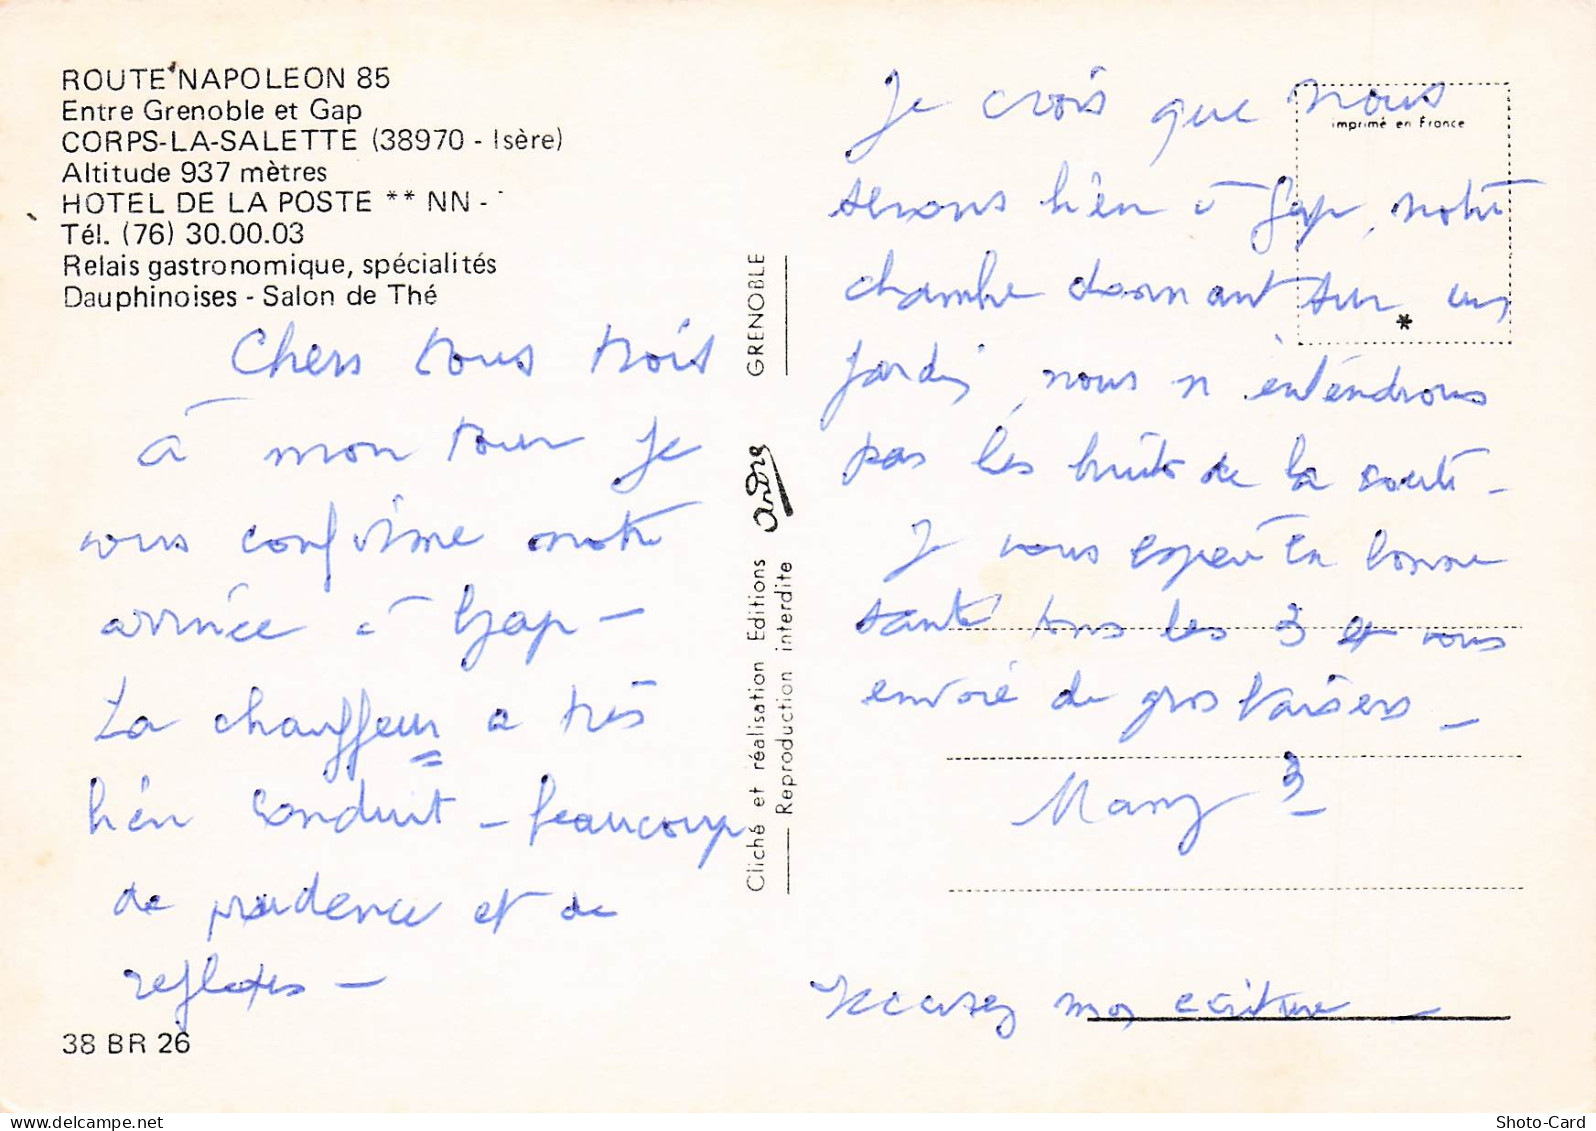 ROUTE NAPOLEON 85
Entre Grenoble et Gap
CORPS-LA-SALETTE (38970 - Isère)
Altitude 937 mètres
HOTEL DE LA POSTE ** NN -
Tél. (76) 30.00.03
Relais gastronomique, spécialités
Dauphinoises - Salon de Thé
Chers tous trois
à mon tour je
vous confirme notre
arrivée à Gap -
La chauffeur a très
bien conduit - beaucoup
de prudence et de
reflexes -
38 BR 26
GRENOBLE
André
Cliché et réalisation Editions
Reproduction interdite
imprimé en France
*
Je crois que nous
serons bien à Gap, notre
chambre donnant sur un
jardin, nous n'entendrons
pas les bruits de la route -
Je vous espère en bonne
santé tous les 3 et vous
envoie de gros baisers -
Excusez mon écriture -
Shoto-Card